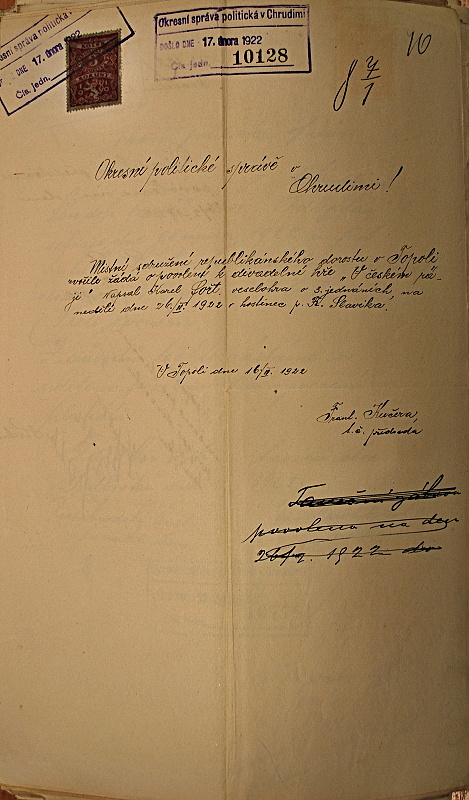 Okresní správa politická v Chrudimi
DOŠLO DNE 17. února 1922
Čís. jedn. 10128
sní správa politická
DNE 17. února 1922
Čís. jedn.
10
Okresní politické správě v
Chrudimi!
Místní sdružení republikánského dorostu v Topoli
uctivě žádá o povolení k divadelní hře „V českém
napsal Karel veselohra o 3. jednáních, na
neděli dne 26/II. 1922 v hostinci p. Fr. Slavíka.
V Topoli dne 16/II. 1922
Frant. Kučera,
t. č. předseda
Taneční zábava
povolena na den
26/2. 1922 do